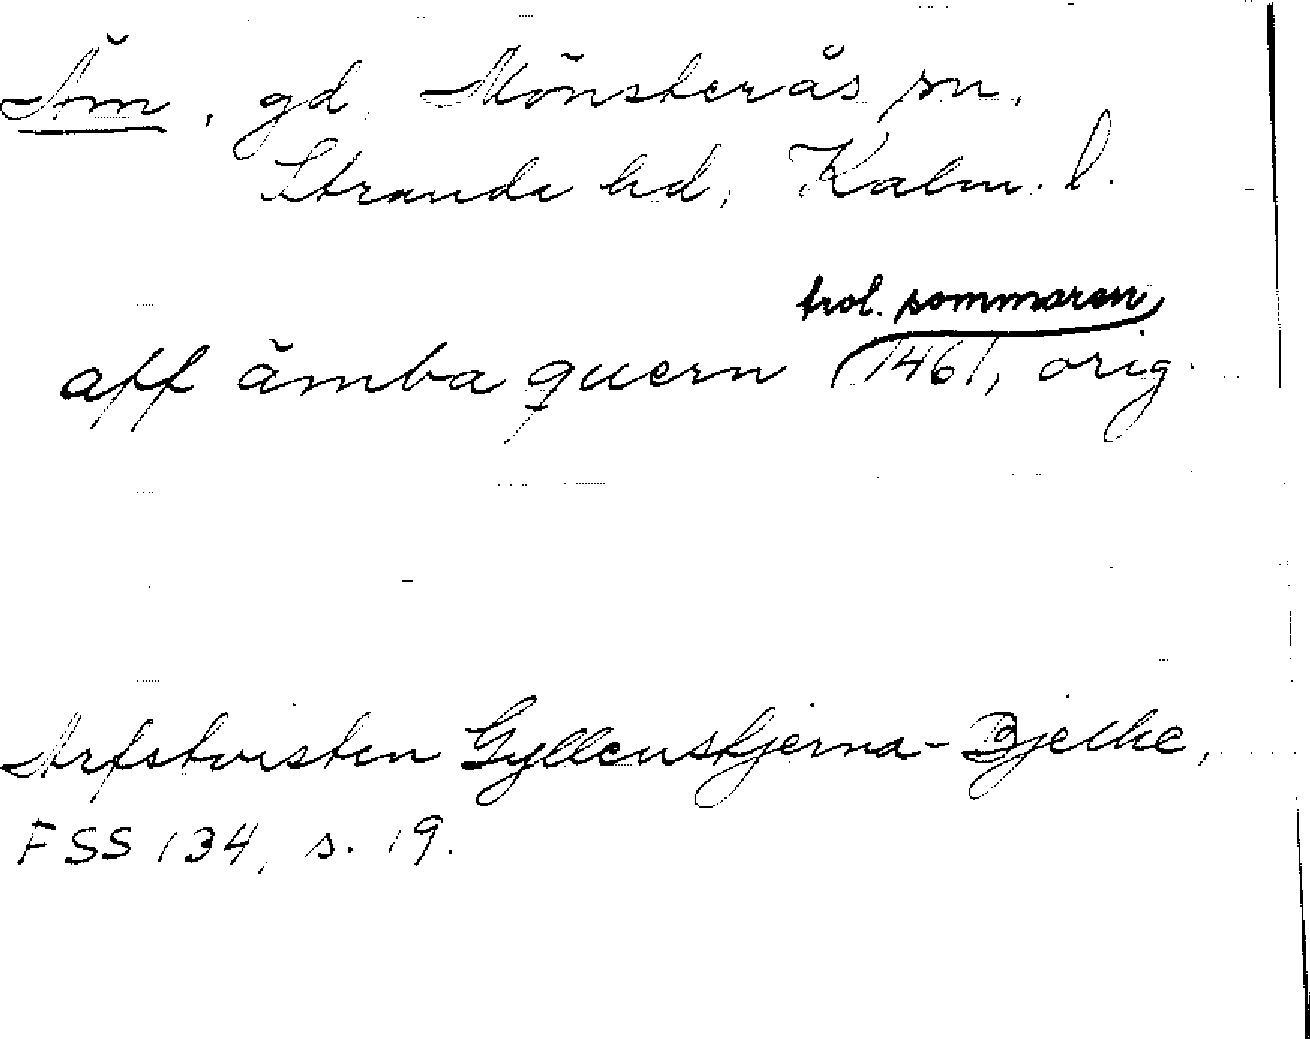 Äm, gd, Mönsterås sn,
Strande hd, Kalm. l.
trol. sommaren
aff ämba quern (1461, orig.
Arfstvisten Gyllenstjerna-Bjelke,
FSS 134, s. 19.